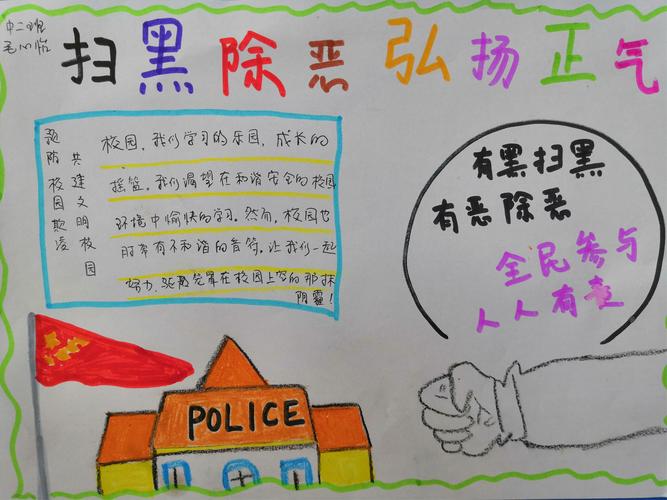 中二班
毛心怡
扫黑除恶弘扬正气
预防校园欺凌
共建文明校园
校园,我们学习的乐园,成长的
摇篮。我们渴望在和谐安全的校园
环境中愉快的学习。然而,校园也
时常有不和谐的音符。让我们一起
努力,驱赶笼罩在校园上空的那抹
阴霾!
有黑扫黑
有恶除恶
全民参与
人人有责
POLICE